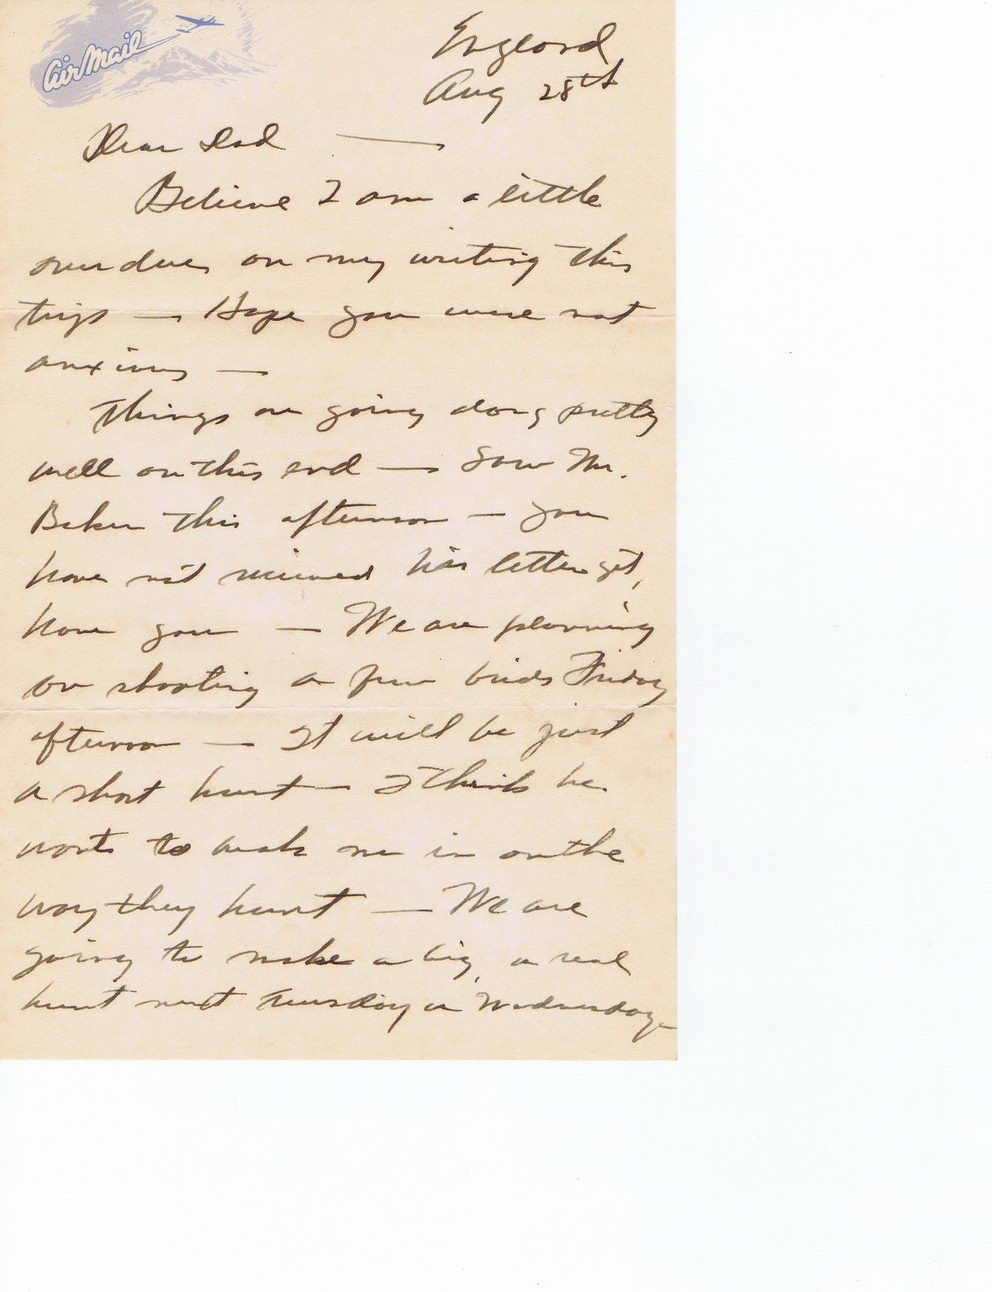 Air Mail
England
Aug 28th
Dear Dad —
Believe I am a little
over due on my writing this
trip — Hope you were not
anxious —
Things are going along pretty
well on this end — Saw Mr.
Baker this afternoon — you
have not received his letter yet,
have you — We are planning
on shooting a few birds Friday
afternoon — It will be just
a short hunt — I think he
wants to break me in on the
way they hunt — We are
going to make a big, a real
hunt next Tuesday or Wednesday —